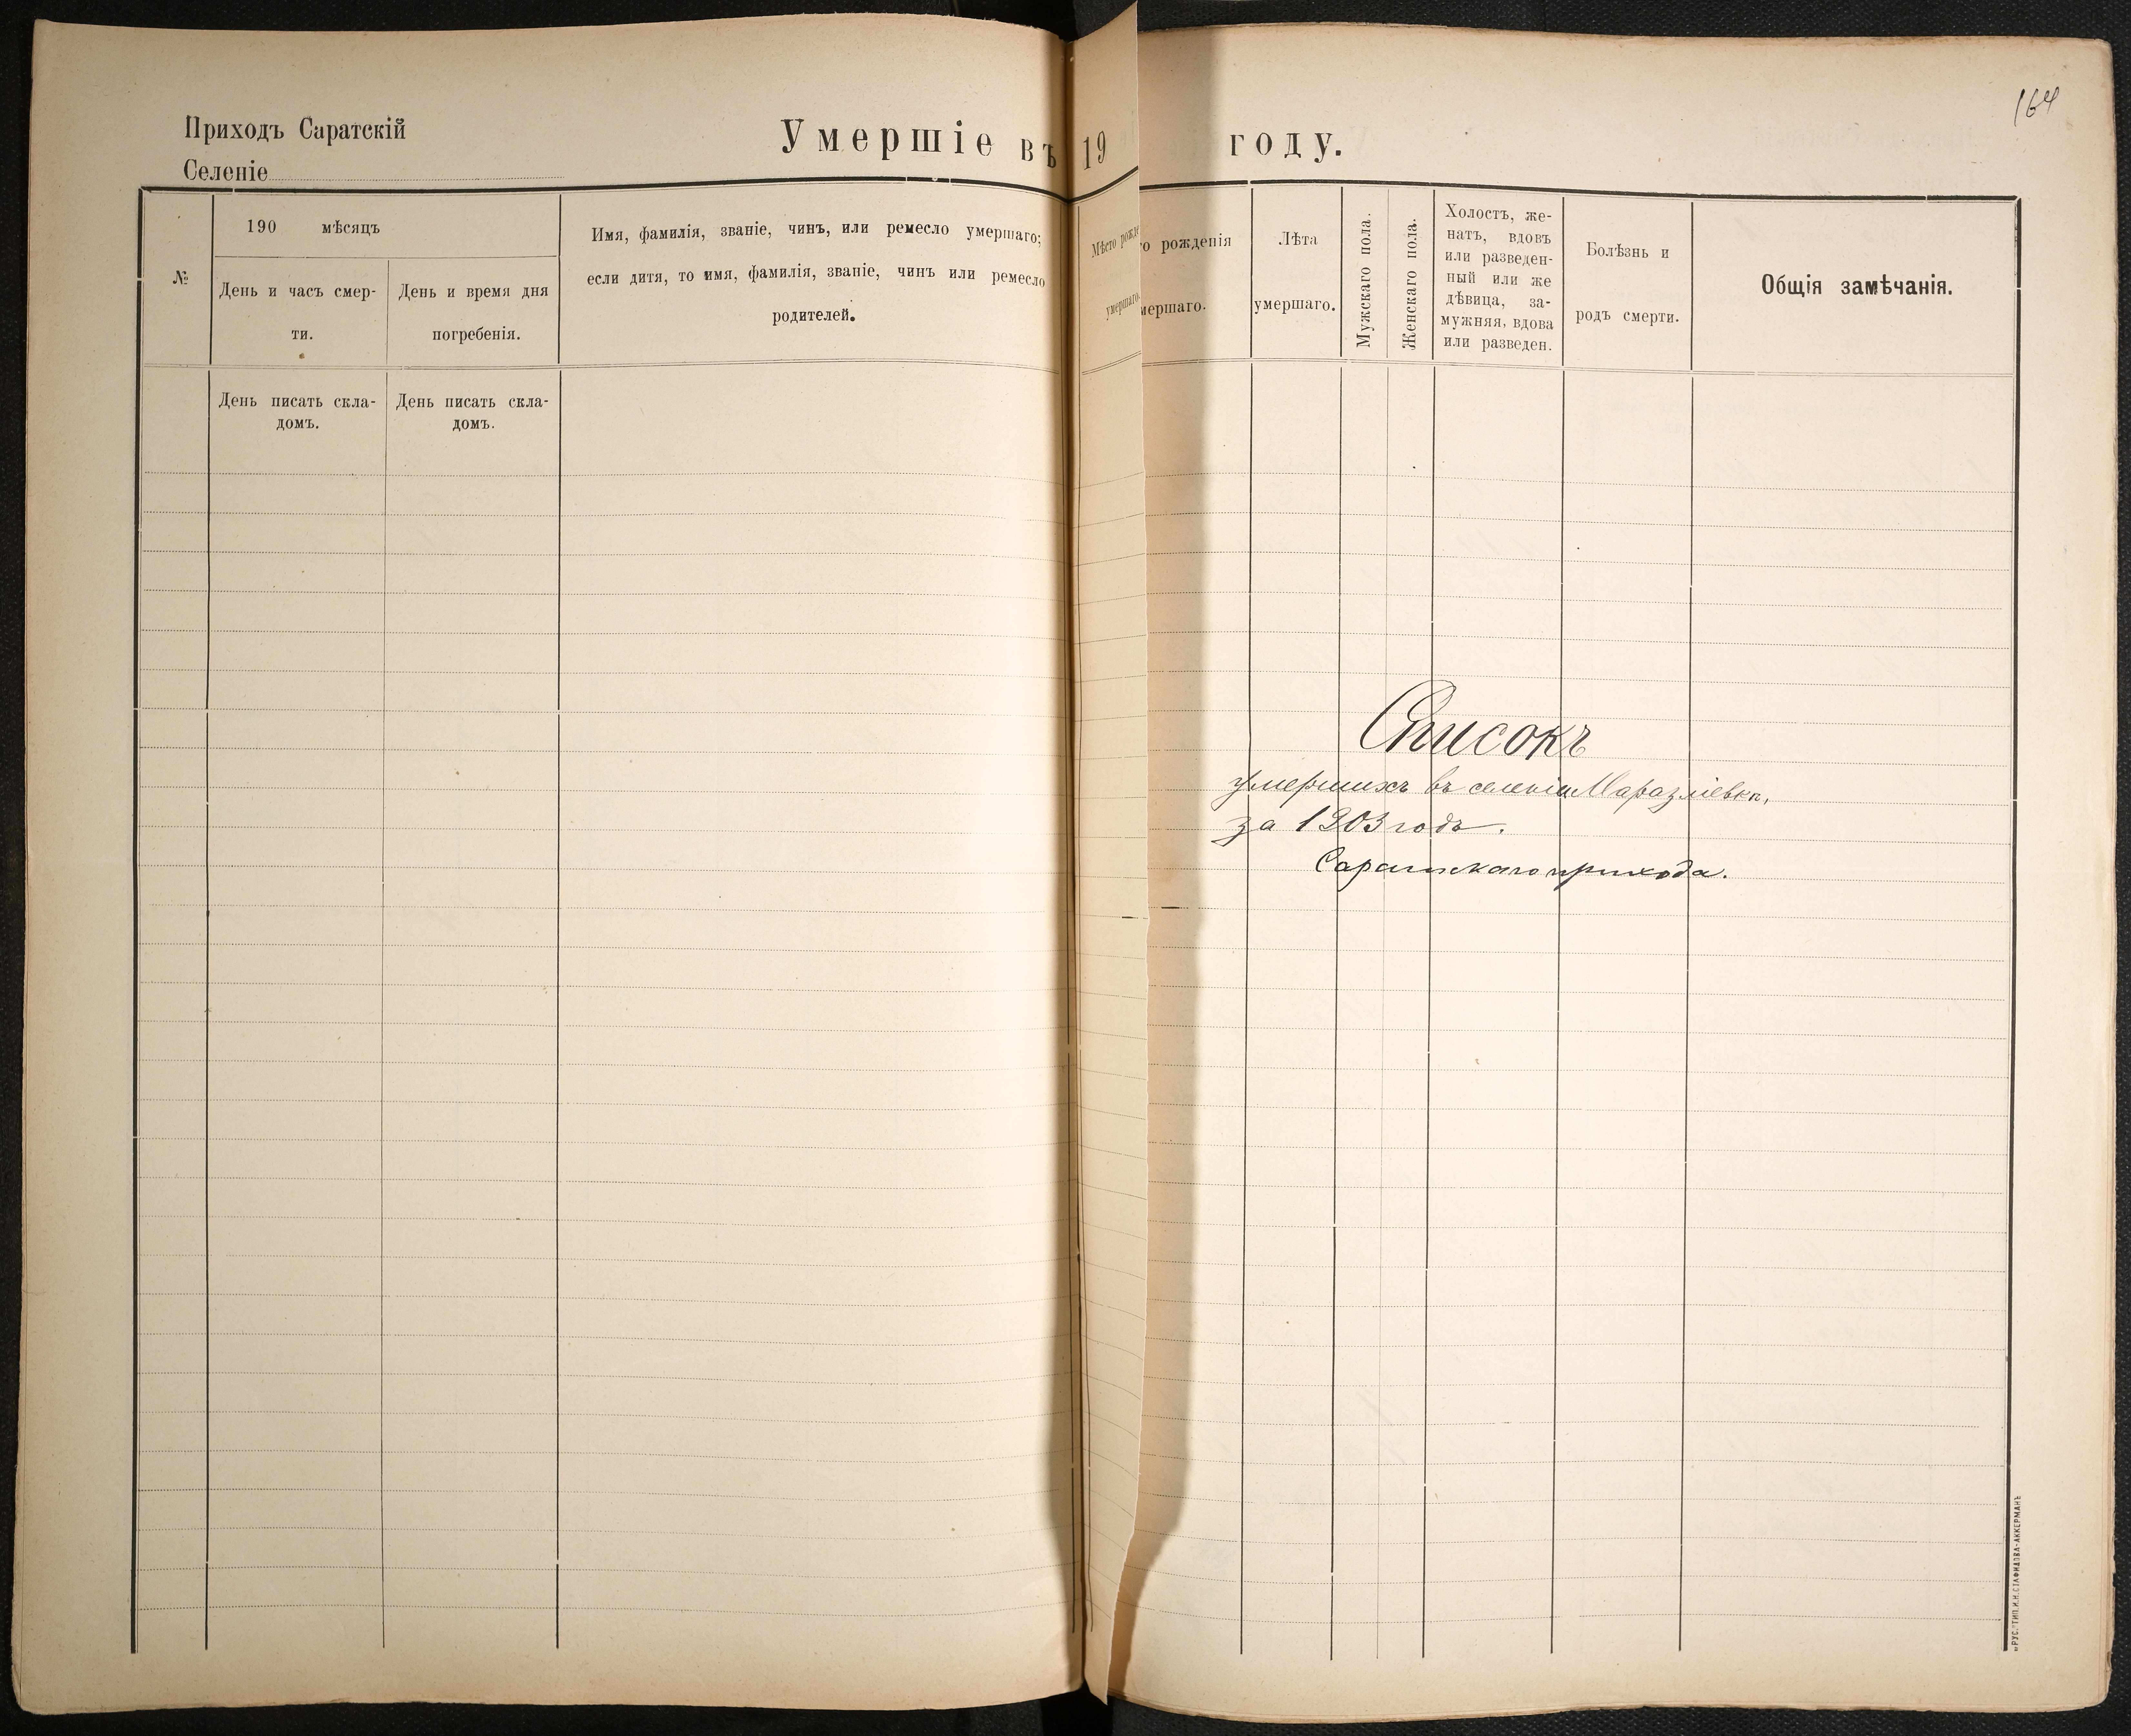 164
Приходъ Саратскій
Умершіе въ 19 году.
Селеніе
№
190 мѣсяцъ
День и часъ смер-
ти.
День и время дня
погребенія.
Имя, фамилія, званіе, чинъ, или ремесло умершаго;
если дитя, то имя, фамилія, званіе, чинъ или ремесло
родителей.
Мѣсто рожде
умершаго.
о рожденія
мершаго.
Лѣта
умершаго.
Мужскаго пола.
Женскаго пола.
Холостъ, же-
натъ, вдовъ
или разведен-
ный или же
дѣвица, за-
мужняя, вдова
или разведен.
Болѣзнь и
родъ смерти.
Общія замѣчанія.
День писать скла-
домъ.
День писать скла-
домъ.
Списокъ
умершихъ въ селеніи Маразліевка,
за 1903 годъ.
Саратскаго прихода.
РУС. ТИП. И. Н. СТАФИДОВА-АККЕРМАНЪ